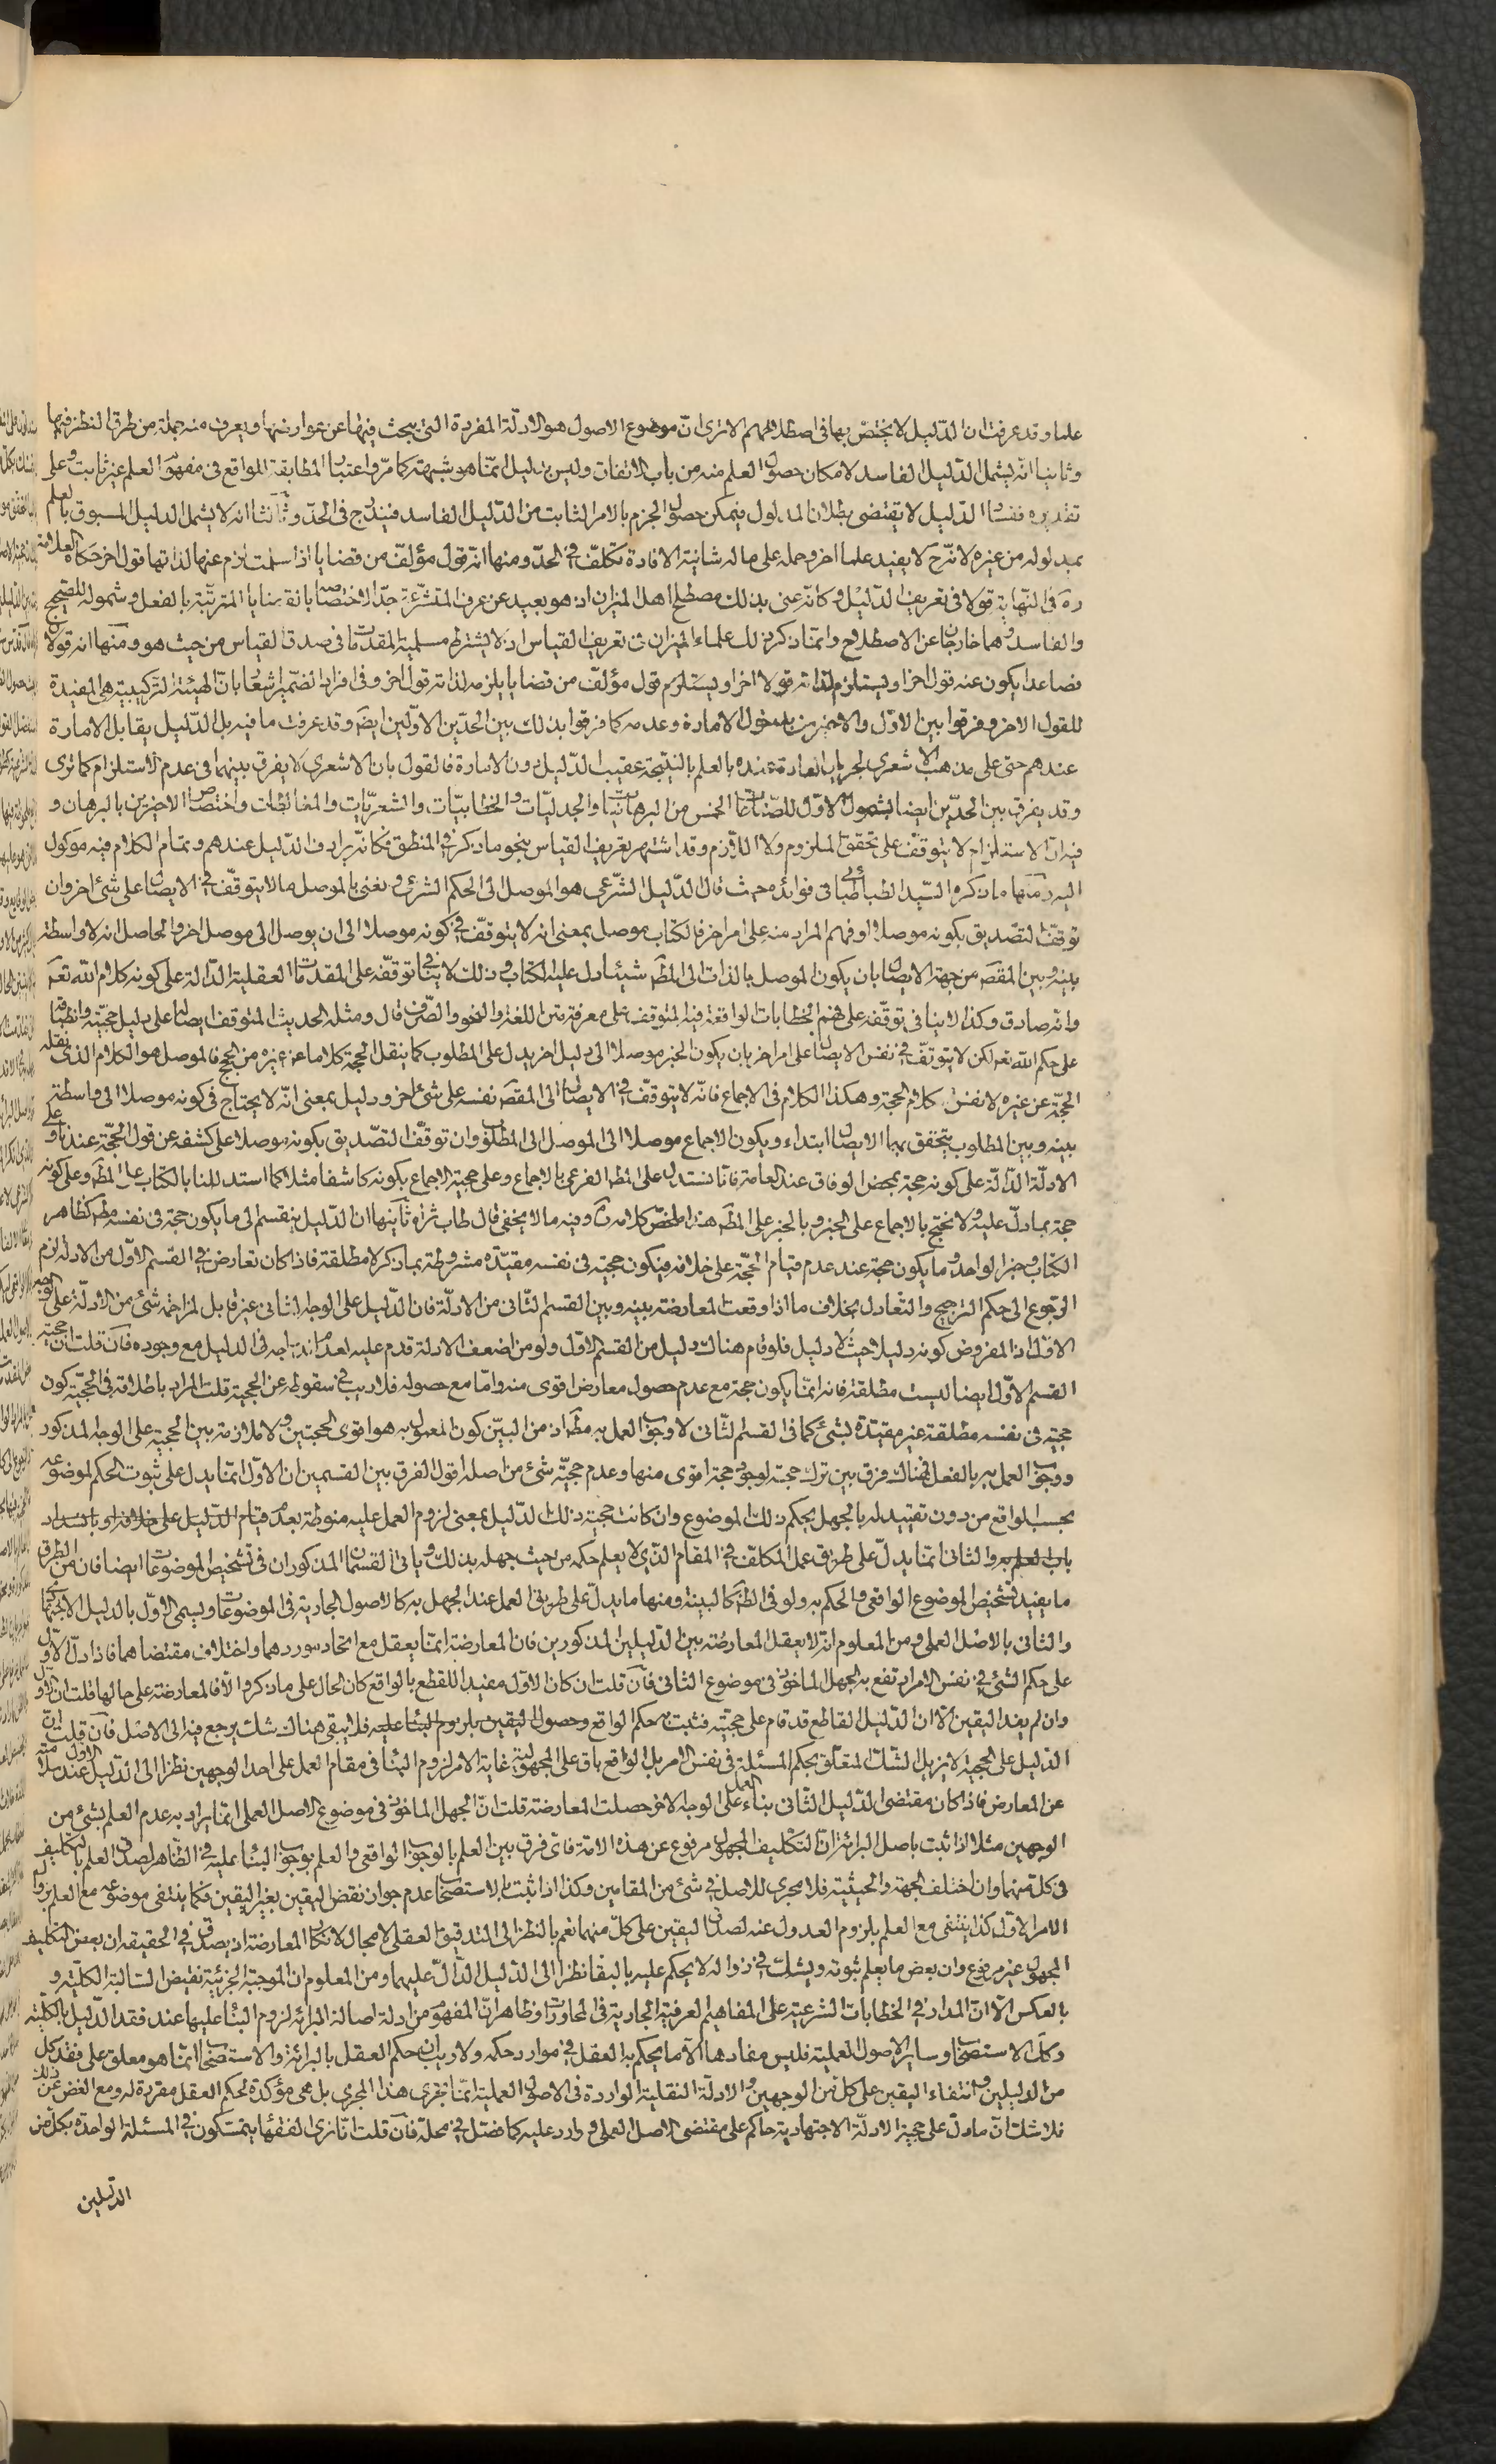 علما وقد عرفت ان الدّليل لا يختصّ بها فى اصطلاحهم الا ترى انّ موضوع الاصول هو الادلّة المفردة التى يبحث فيها عن عوارضها ويعرف منه جملة من طرق النظر فيها
وثانيا انّه يشمل الدّليل الفاسد لامكان حصول العلم منه من باب الاتفاق وليس بدليل انّما هو شبهة كما مرّ واعتبار المطابقة للواقع فى مفهوم العلم غير ثابت وعلى
تقديره ففساد الدّليل لا يقتضى بطلان المدلول فيمكن حصول الجزم بالامر الثابت من الدّليل الفاسد فيندرج فى الحدّ وثالثا انه لا يشمل الدليل المسبوق بالعلم
بمدلوله من غيره لانّه ح لا يفيد علما اخر وحمله على ماله شانيّة الافادة تكلّف فى الحدّ ومنها انّه قول مؤلّف من قضايا اذا سلمت لزم عنها لذاتها قول اخر حكاه العلامة
ره فى النّهاية قولا فى تعريف الدّليل وكانّه عنى بذلك مصطلح اهل الميزان اذ هو بعيد عن عرف المتشرّعة جدّا لاختصاصه بالقضايا المترتّبة بالفعل وشموله للصّحيح
والفاسد وهما خارجان عن الاصطلاح وانّما ذكر ذلك علماء الميزان فى تعريف القياس اذ لا يشترط مسلمية المقدّمات فى صدق القياس من حيث هو ومنها انه قولان
فصاعدا يكون عنه قول اخر او يستلزم لذاته قولا اخر او يستلزم قول مؤلّف من قضايا يلزمه لذاته قول اخر وفى افراد الضّمير اشعار بانّ الهيئة التركيبيّة هى المفيدة
للقول الاخر وفرقوا بين الاوّل والاخيرين بدخول الامارة وعدمه كما فرقوا بذلك بين الحدّين الاوّلين ايضا وقد عرفت ما فيه بل الدّليل يقابل الامارة
عندهم حتى على مذهب الاشعرى لجريان العادة عنده بالعلم بالنتيجة عقيب الدّليل دون الامارة فالقول بان الاشعرى لا يفرق بينهما فى عدم الاستلزام كما ترى
وقد يفرق بين الحدّين ايضا بشمول الاوّل للصّناعات الخمس من البرهانيّات والجدليّات والخطابيّات والشعريّات والمغالطات واختصاص الاخيرين بالبرهان و
فيه انّ الاستلزام لا يتوقّف على تحقق الملزوم ولا اللازم وقد اشتهر تعريف القياس بنحو ما ذكر فى المنطق فكانّه يرادف الدّليل عندهم وتمام الكلام فيه موكول
اليه ومنها ما ذكره السّيد الطباطبائى فى فوائده حيث قال الدّليل الشّرعى هو الموصل الى الحكم الشرعى ونعنى بالموصل ما لا يتوقّف فى الايصال على شئ اخر وان
توقف التّصديق بكونه موصلا او فهم المراد منه على امر اخر فالكتاب موصل بمعنى انه لا يتوقّف فى كونه موصلا الى ان يوصل الى موصل اخر والحاصل انه لا واسطة
بينه وبين المقصد من جهة الايصال بان يكون الموصل بالذات الى المط شيئا دل عليه الكتاب وذلك لا ينافى توقّفه على المقدمات العقلية الدّالة على كونه كلام الله تعم
وانّه صادق وكذا لا ينافى توقّفه على فهم الخطابات الواقعة فيه المتوقف على معرفة متن اللغة والنحو والصّرف قال ومثله الحديث المتوقف ايصاله على دليل حجيّته وانطباقه
على حكم الله تعم لكن لا يتوقّف فى نفس الايصال على امر اخر بان يكون الخبر موصلا الى دليل اخر يدل على المطلوب كما ينقل الحجة كلاما عن غيره من الحجج فالموصل هو الكلام الذى نقله
الحجّة عن غيره لا نفس كلام الحجة وهكذا الكلام فى الاجماع فانّه لا يتوقّف فى الايصال الى المقصد نفسه على شئ اخر ودليل بمعنى انّه لا يحتاج فى كونه موصلا الى واسطة
بينه وبين المطلوب يتحقق بها الايصال ابتداء ويكون الاجماع موصلا الى الموصل الى المطلوب وان توقّف التّصديق بكونه موصلا على كشفه عن قول الحجّة عندنا وعلى
الادلّة الدّالّة على كونه حجة بمحض الوفاق عند العامة فانّا نستدل على المط الفرعى بالاجماع وعلى حجية الاجماع بكونه كاشفا مثلا كما استدللنا بالكتاب على المط وعلى كونه
حجة بما دلّ عليه ولا نحتج بالاجماع على الخبر وبالخبر على المط هذا ملخّص كلامه ره وفيه ما لا يخفى قال طاب ثراه ثانيها ان الدّليل ينقسم الى ما يكون حجة فى نفسه مط كظاهر
الكتاب وخبر الواحد وما يكون حجة عند عدم قيام الحجّة على خلافه فيكون حجيته فى نفسه مقيّدة مشروطة بما ذكر لا مطلقة فاذا كان تعارض فى القسم الاوّل من الادلة لزم
الرّجوع الى حكم الترجيح والتّعادل بخلاف ما اذا وقعت المعارضة بينه وبين القسم الثّانى من الادلّة فان الدّليل على الوجه الثانى غير قابل لمزاحمة شئ من الادلّة على الوجه
الاوّل اذ المفروض كونه دليلا حيث لا دليل فلو قام هناك دليل من القسم الاوّل ولو من اضعف الادلة قدم عليه لعدم اندراجه فى الدليل مع وجوده فان قلت ان حجية
القسم الاوّل ايضا ليست مطلقة فانه انّما يكون حجة مع عدم حصول معارض اقوى منه وامّا مع حصوله فلا ريب فى سقوطه عن الحجية قلت المراد باطلاقه فى الحجيّة كون
حجيته فى نفسه مطلقة غير مقيّدة بشئ كما فى القسم الثّانى لا وجوب العمل به مط اذ من البيّن كون المعمول به هو اقوى الحجتين ولا ملازمة بين الحجية على الوجه المذكور
ووجوب العمل به بالفعل فهناك فرق بين ترك حجة لوجود حجة اقوى منها وعدم حجيّة شئ من اصله اقول الفرق بين القسمين ان الاوّل انّما يدل على ثبوت الحكم لموضوعه
بحسب الواقع من دون تقييد له بالجهل بحكم ذلك الموضوع وان كانت حجية ذلك الدّليل بمعنى لزوم العمل عليه منوطة بعدم قيام الدّليل على خلافه او بانسداد
باب العلم به والثانى انّما يدلّ على طريق عمل المكلّف فى المقام الذّى لا يعلم حكمه من حيث جهله بذلك وياتى القسمان المذكوران فى تشخيص الموضوعات ايضا فان من الطرق
ما يفيد تشخيص الموضوع الواقعى والحكم به ولو فى الظّ كالبينة ومنها ما يدلّ على طريق العمل عند الجهل به كالاصول الجارية فى الموضوعات ويسمى الاوّل بالدليل الاجتهادى
والثانى بالاصل العملى ومن المعلوم انّه لا يعقل المعارضة بين الدّليلين المذكورين فان المعارضة انّما يعقل مع اتحاد موردهما واختلاف مقتضاهما فاذا دلّ الاوّل
على حكم الشئ فى نفس الامر ارتفع به الجهل الماخوذ فى موضوع الثانى فان قلت ان كان الاوّل مفيدا للقطع بالواقع كان الحال على ما ذكر والا فالمعارضة على حالها قلت ان الاوّل
وان لم يفد اليقين الا ان الدّليل القاطع قد قام على حجيّته فثبت به حكم الواقع وحصول اليقين بلزوم البناء عليه فلا يبقى هناك شك يرجع فيه الى الاصل فان قلت ان
الدّليل على الحجية لا يزيل الشّك المتعلّق بحكم المسئلة فى نفس الامر بل الواقع باق على المجهولية غاية الامر لزوم البناء فى مقام العمل على احد الوجهين نظرا الى الدّليل الاول عند سلامته
عن المعارض فاذا كان مقتضى الدّليل الثّانى بناء العمل على الوجه الاخر حصلت المعارضة قلت انّ الجهل الماخوذ فى موضوع الاصل العملى انّما يراد به عدم العلم بشئ من
الوجهين مثلا اذا ثبت باصل البرائة انّ التكليف المجهول مرفوع عن هذه الامة فاىّ فرق بين العلم بالوجوب الواقعى والعلم بوجوب البناء عليه فى الظّاهر لصدق العلم بالتّكليف
فى كل منهما وان اختلف الجهة والحيثية فلا مجرى للاصل فى شئ من المقامين وكذا اذا ثبت بالاستصحاب عدم جواز نقض اليقين بغير اليقين فكما ينتفى موضوعه مع العلم بزوال
الامر الاوّل كذا ينتفى مع العلم بلزوم العدول عنه لصدق اليقين على كلّ منهما نعم بالنظر الى التدقيق العقلى لا مجال لانكار المعارضة اذ يصدق فى الحقيقة ان بعض التكليف
المجهول غير مرفوع وان بعض ما يعلم ثبوته ويشك فى زواله لا يحكم عليه بالبقاء نظرا الى الدّليل الدّالّ عليهما ومن المعلوم ان الموجبة الجزئية نقيض السّالبة الكليّة و
بالعكس الّا انّ المدار فى الخطابات الشرعيّة على المفاهيم العرفية الجارية فى المحاورات وظاهر انّ المفهوم من ادلة اصالة البرائة لزوم البناء عليها عند فقد الدّليل بالكليّة
وكذا الاستصحاب وساير الاصول العملية فليس مفادها الّا ما يحكم به العقل فى موارد حكمه ولا ريب ان حكم العقل بالبرائة والاستصحاب انّما هو معلق على فقد كل
من الدليلين وانتفاء اليقين على كل من الوجهين والادلّة النقلية الواردة فى الاصول العملية انّما تجرى هذا المجرى بل هى مؤكدة لحكم العقل مقررة له ومع الغض عن ذلك
فلا شك انّ ما دلّ على حجية الادلّة الاجتهادية حاكم على مقتضى الاصل العملى وارد عليه كما فصّل فى محله فان قلت انّا نرى الفقهاء يتمسّكون فى المسئلة الواحدة بكل من
الدّليلين